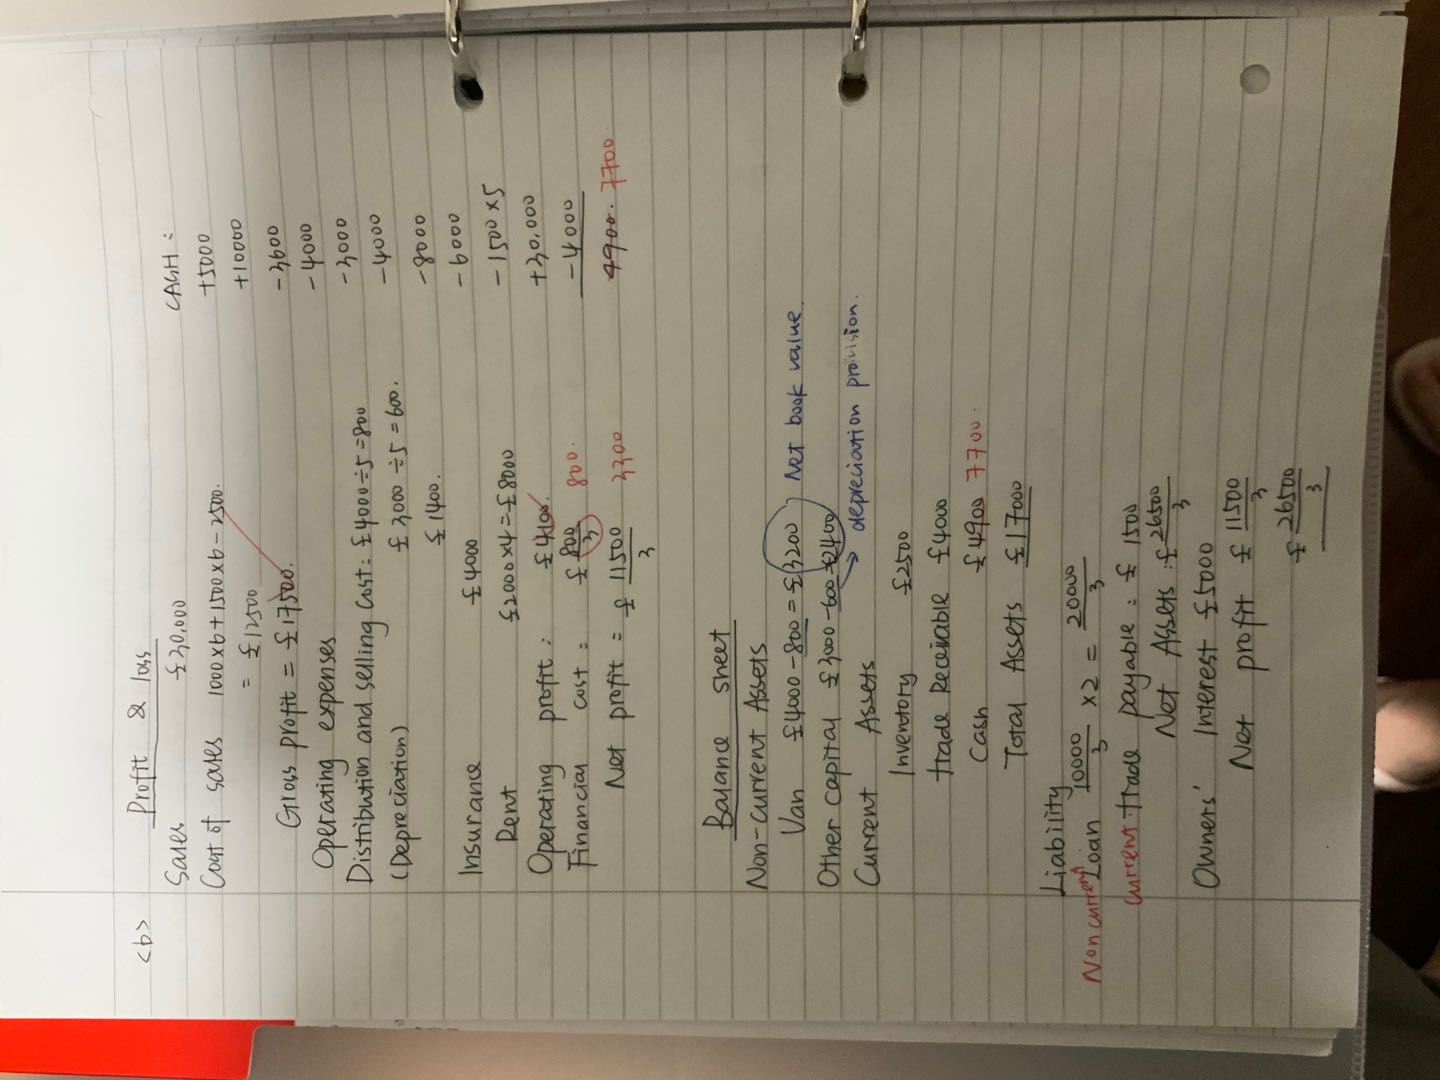 <b> Profit & loss
Sales £30,000
Cost of sales 1000×6+1500×6-2500.
= £12500
Gross profit = £17500.
Operating expenses
Distribution and selling cost: £4000÷5=800
(Depreciation) £3000÷5=600.
£1400.
Insurance £4000
Rent £2000×4=£8000
Operating profit: £4100.
Financial cost = £ 800/3 800.
Net profit = £ 11500/3 3300
CASH:
+5000
+10000
-3600
-4000
-3000
-4000
-8000
-6000
-1500×5
+30,000
-4000
4900. 7700
Balance sheet
Non-current Assets
Van £4000-800=£3200 Net book value.
Other capital £3000-600=2400
→ depreciation provision.
Current Assets
Inventory £2500
trade Receivable £4000
Cash £4900 7700.
Total Assets £17000
Liability
Non current Loan 10000/3 ×2 = 20000/3
current trade payable: £ 1500
Net Assets: £ 26500/3
Owners' Interest £5000
Net profit £ 11500/3
£ 26500/3